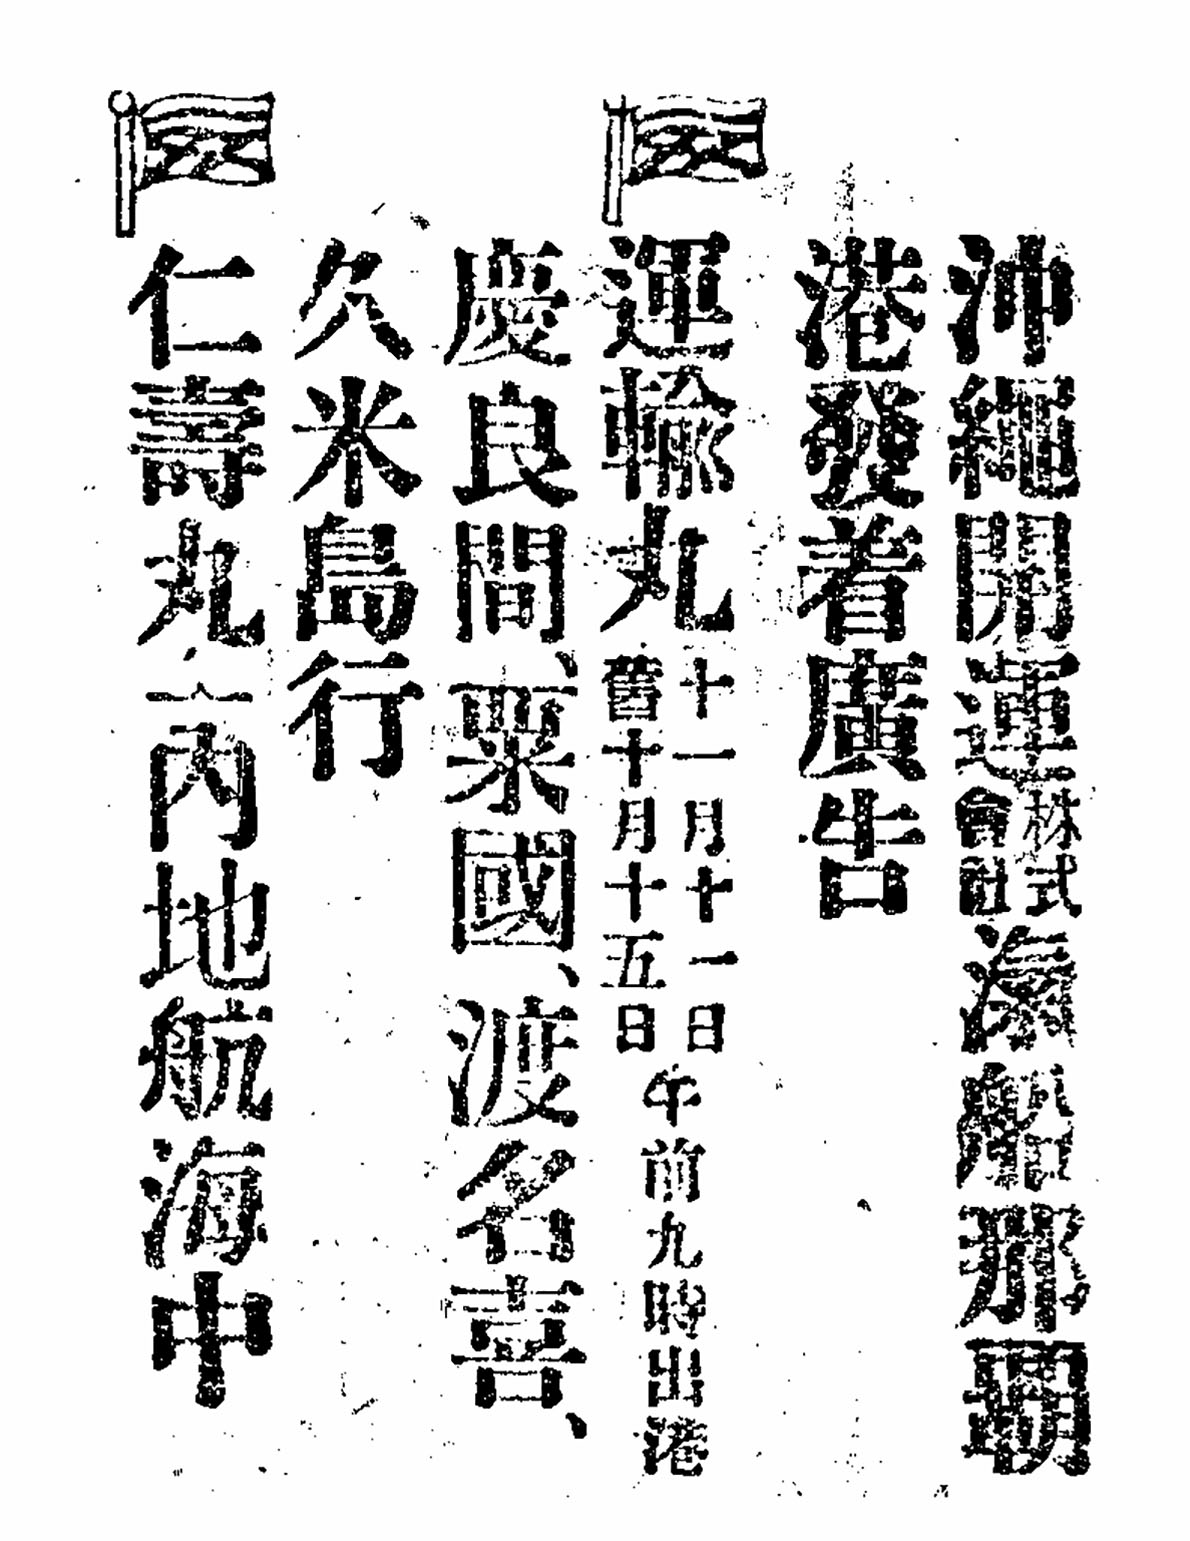 沖繩開運株式會社滊船那覇
港發着廣告
運輸丸
十一月十一日
舊十月十五日
午前九時出港
慶良間、粟國、渡名喜、
久米島行
仁壽丸ハ内地航海中